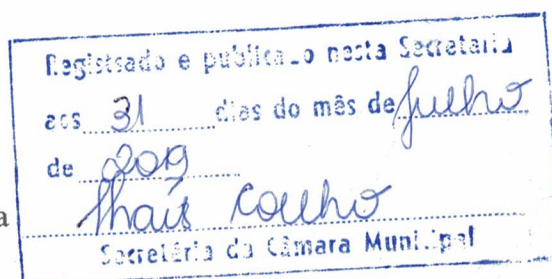 Registsado e publica_o nesta Secretaria
aos 31 dias do mês de Julho
de 2019
Thaís Coelho
a
Secretária da Câmara Municipal